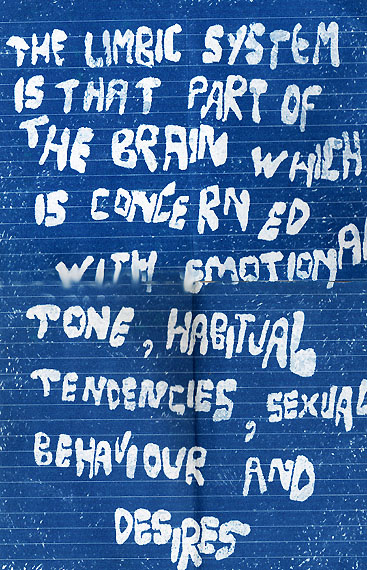 THE LIMBIC SYSTEM
IS THAT PART OF
THE BRAIN WHICH
IS CONCERNED
WITH EMOTIONAL
TONE, HABITUAL
TENDENCIES, SEXUAL
BEHAVIOUR AND
DESIRES